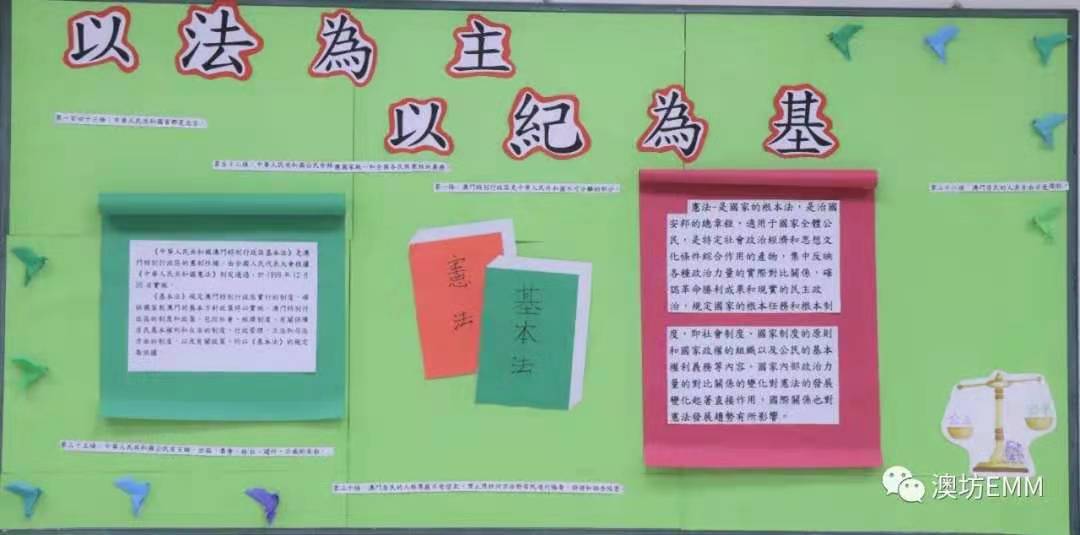 以法為主
以紀為基
第一百四十三條:中華人民共和國首都是北京。
第五十二條:中華人民共和國公民有維護國家統一和全國各民族團結的義務。
第一條:澳門特別行政區是中華人民共和國不可分離的部分。
第二十八條:澳門居民的人身自由不受侵犯。
《中華人民共和國澳門特別行政區基本法》是澳
門特別行政區的憲制性
由全國人民代表大會根據
《中華人民共和國憲法》制定通過,於1999年12月
20日實施。
《基本法》規定澳門特別行政區實行的制度,確
保國家對澳門的基本方針政策得以實施。澳門特別行
政區的制度和政策,包括社會、經濟制度,有關保障
居民基本權利和自由的制度,行政管理、立法和司法
方面的制度,以及有關政策,均以《基本法》的規定
為依據。
憲法
基本法
憲法-是國家的根本法,是治國
安邦的總章程,適用于國家全體公
民,是特定社會政治經濟和思想文
化條件綜合作用的產物,集中反映
各種政治力量的實際對比關係,確
認革命勝利成果和現實的民主政
治,規定國家的根本任務和根本制
度,即社會制度、國家制度的原則
和國家政權的組織以及公民的基本
權利義務等內容。國家內部政治力
量的對比關係的變化對憲法的發展
變化起著直接作用,國際關係也對
憲法發展趨勢有所影響。
第三十五條:中華人民共和國公民有言論、出版、集會、結社、遊行、示威的自由。
第三十條:澳門居民的人格尊嚴不受侵犯。禁止用任何方法對居民進行侮辱、誹謗和誣告陷害。
澳坊EMM